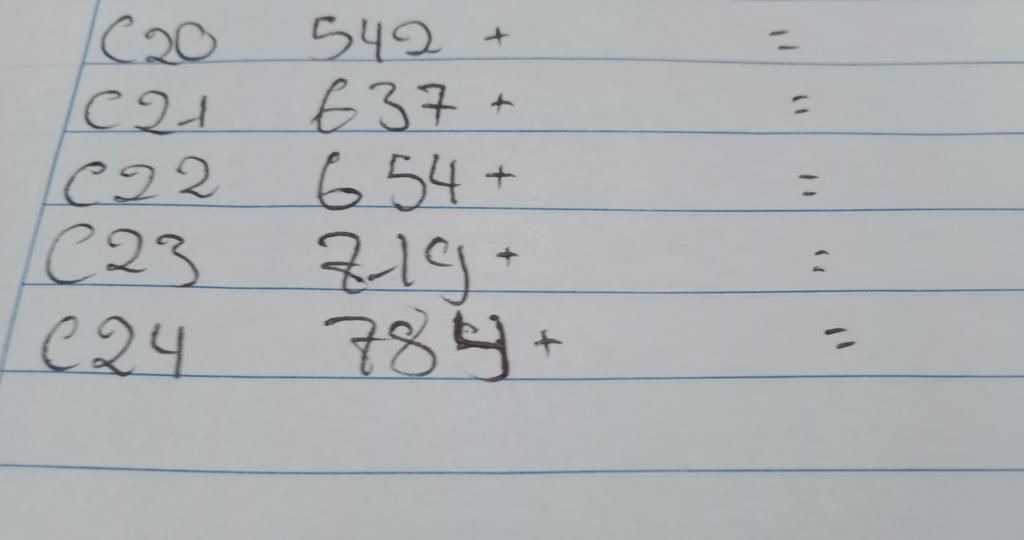 C20 542 + =
C21 637 + =
C22 654 + =
C23 719 + =
C24 789 + =